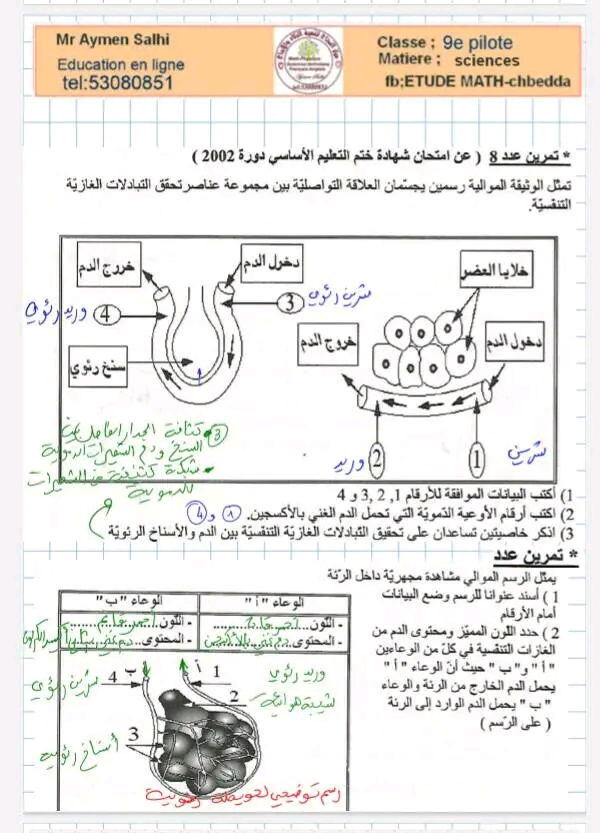 Mr Aymen Salhi
Education en ligne
tel:53080851
Classe ; 9e pilote
Matiere ; sciences
fb;ETUDE MATH-chbedda
* تمرين عدد 8 ( عن امتحان شهادة ختم التعليم الأساسي دورة 2002 )
تمثل الوثيقة الموالية رسمين يجسّمان العلاقة التواصليّة بين مجموعة عناصر تحقق التبادلات الغازيّة
التنفسيّة.
خروج الدم
دخول الدم
4
وريد رئوي
3
شريان رئوي
سنخ رئوي
خلايا العضو
خروج الدم
دخول الدم
2
وريد
1
شريان
3
كثافة الجدار الفاصل بين
السنخ ودم الشعيرات الدموية
شبكة كثيفة من الشعيرات
الدموية
1) أكتب البيانات الموافقة للأرقام 1, 2, 3 و 4
2) اكتب أرقام الأوعية الدّمويّة التي تحمل الدم الغني بالأكسجين. 1 و 4
3) اذكر خاصيتين تساعدان على تحقيق التبادلات الغازيّة التنفسيّة بين الدم والأسناخ الرئويّة
* تمرين عدد
يمثل الرسم الموالي مشاهدة مجهريّة داخل الرئة
1 ) أسند عنوانا للرسم وضع البيانات
أمام الأرقام
2 ) حدد اللون المميّز ومحتوى الدم من
الغازات التنفسية في كلّ من الوعاءين
" أ " و" ب " حيث أنّ الوعاء " أ "
يحمل الدم الخارج من الرئة والوعاء
" ب " يحمل الدم الوارد إلى الرئة
( على الرّسم )
الوعاء " أ "
الوعاء " ب "
- اللون
- اللون أحمر قاتم
- المحتوى دم غني بالأكسجين
- المحتوى دم غني
أ
ب
1
وريد رئوي
2
شعيبة هوائية
3
أسناخ رئوية
4
شريان رئوي
رسم توضيحي لحويصلة رئوية